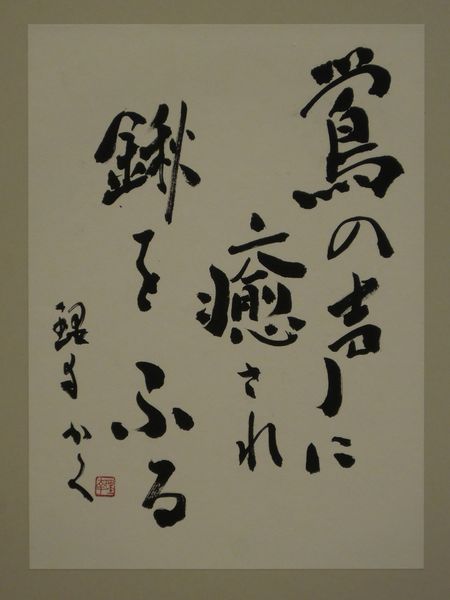 鶯の声に
癒され
鍬をふる
かく